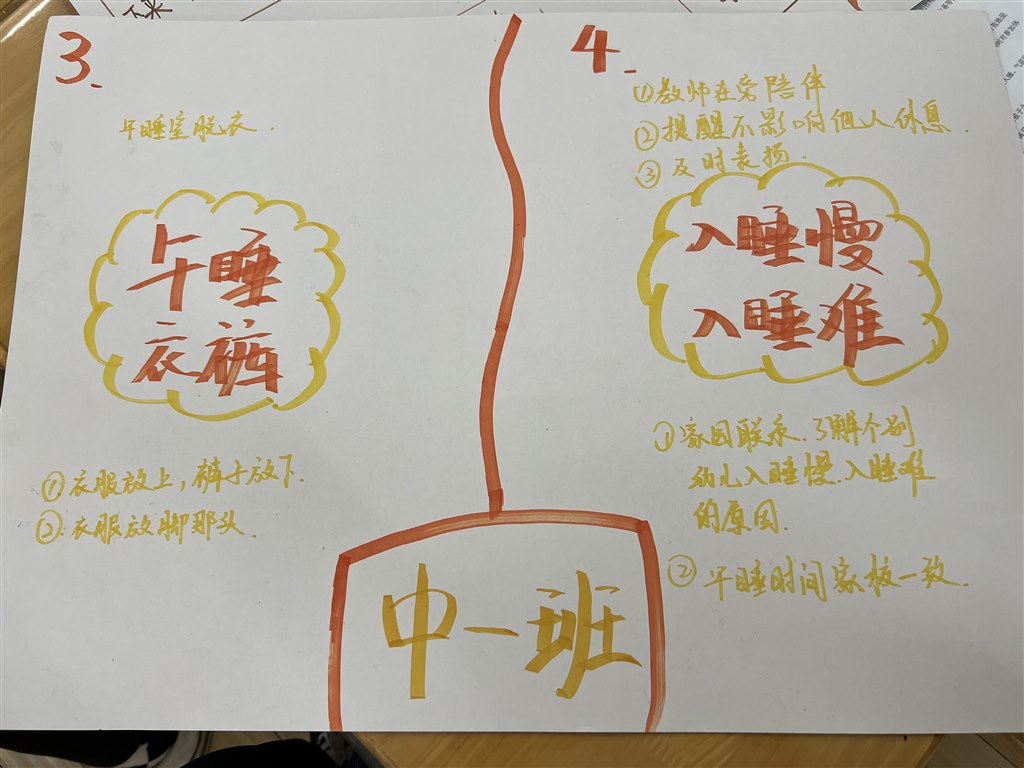 3.
午睡室脱衣.
午睡
衣裤
①衣服放上,裤子放下.
②衣服放脚那头.
4.
①教师在旁陪伴
②提醒不影响他人休息.
③及时表扬.
入睡慢
入睡难
①家园联系.了解个别
幼儿入睡慢.入睡难
的原因.
②午睡时间家校一致.
中一班